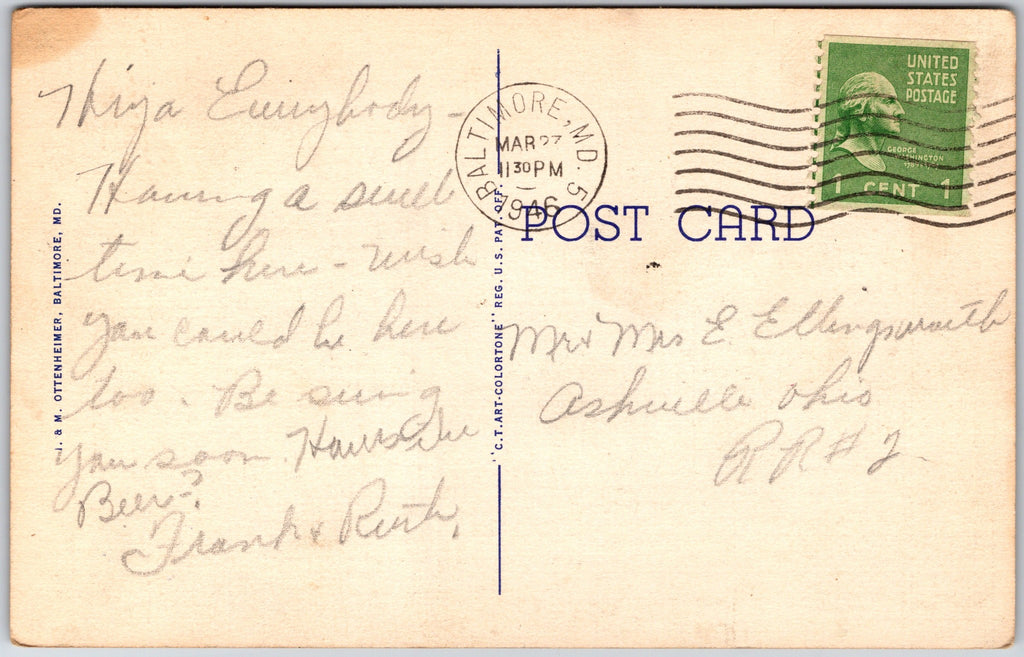 Hiya Everybody -
Having a swell
time here - wish
you could be here
too. Be seeing
you soon. How's the
Beer?
Frank & Ruth,
J. & M. OTTENHEIMER, BALTIMORE, MD.
"C.T. ART-COLORTONE" REG. U.S. PAT. OFF.
BALTIMORE, MD. 5
MAR 27
11 30 PM
1946
UNITED
STATES
POSTAGE
GEORGE
WASHINGTON
1 CENT 1
POST CARD
Mr & Mrs E. Ellingsworth
Ashville Ohio
RR # 2